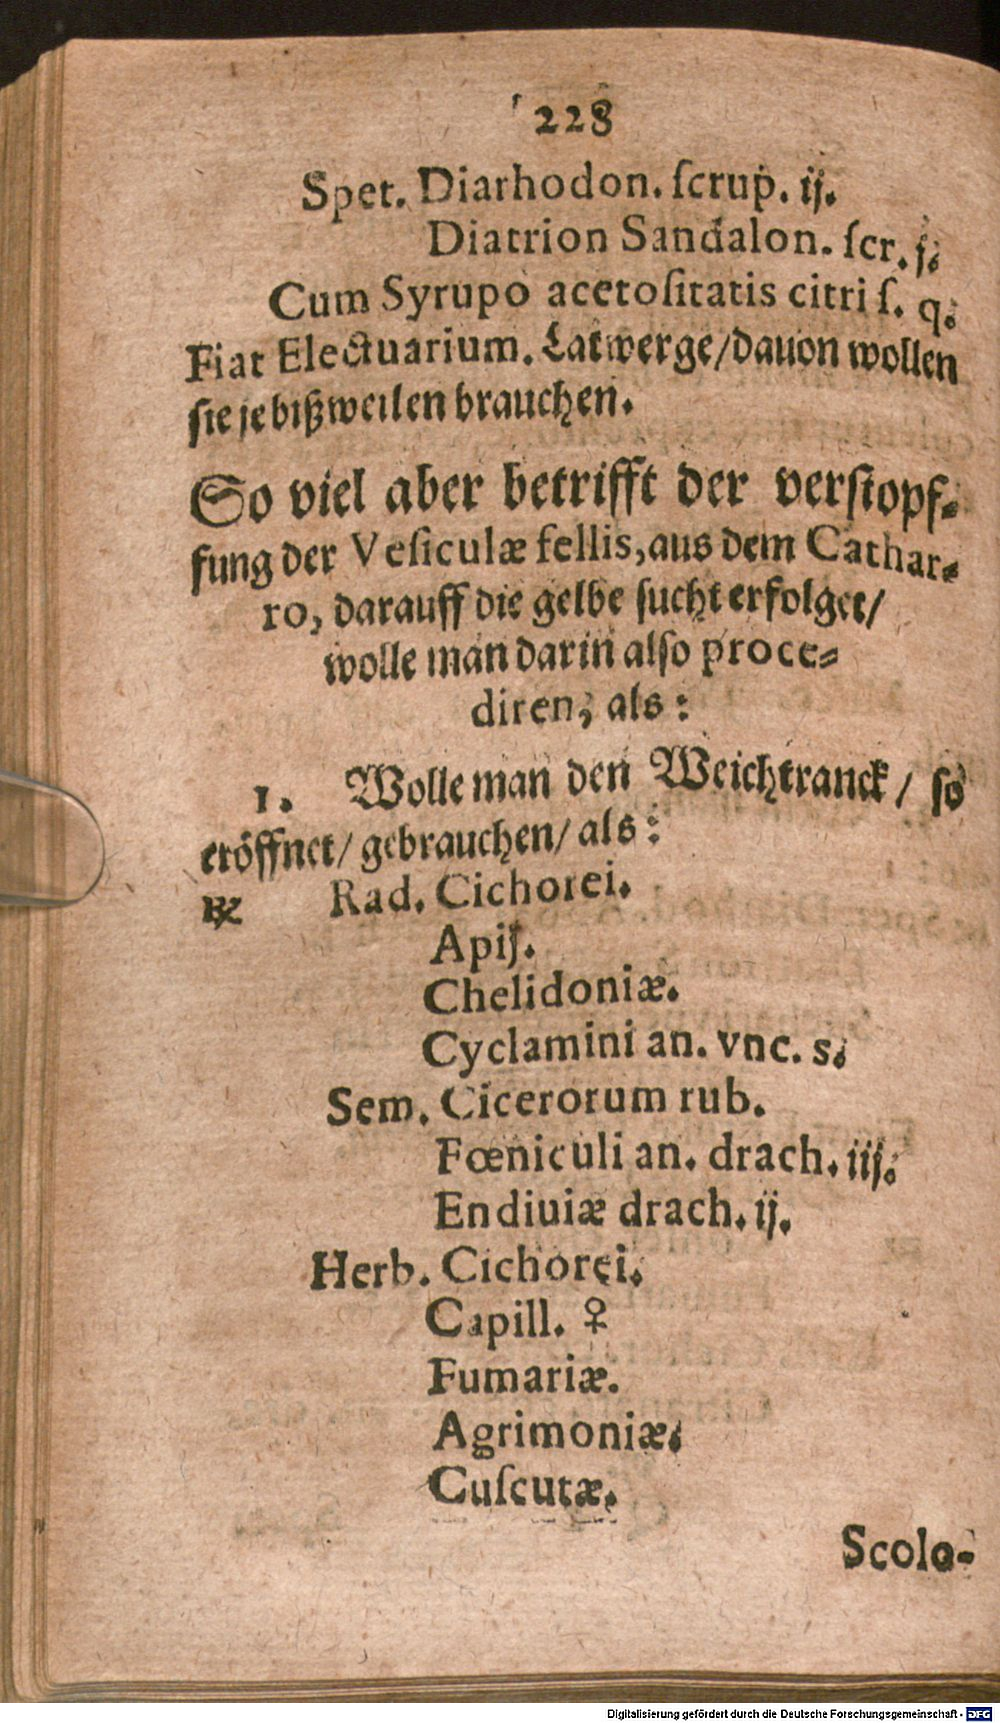 228
Spet. Diarhodon. ſcrup. ij.
Diatrion Sandalon. ſcr. j.
Cum Syrupo acetoſitatis citri ſ. q.
Fiat Electuarium. Latwerge/dauon wollen
ſie je bißweilen brauchen.
So viel aber betrifft der verſtopf-
fung der Veſiculæ fellis, aus dem Cathar-
ro, darauff die gelbe ſucht erfolget/
wolle man darin alſo proce-
diren, als:
1. Wolle man den Weichtranck/ ſo
eröffnet/ gebrauchen/ als:
℞ Rad. Cichorei.
Apij.
Chelidoniæ.
Cyclamini an. vnc. s.
Sem. Cicerorum rub.
Fœniculi an. drach. iij.
Endiuiæ drach. ij.
Herb. Cichorei.
Capill. ♀
Fumariæ.
Agrimoniæ.
Cuſcutæ.
Scolo-
Digitalisierung gefördert durch die Deutsche Forschungsgemeinschaft - DFG